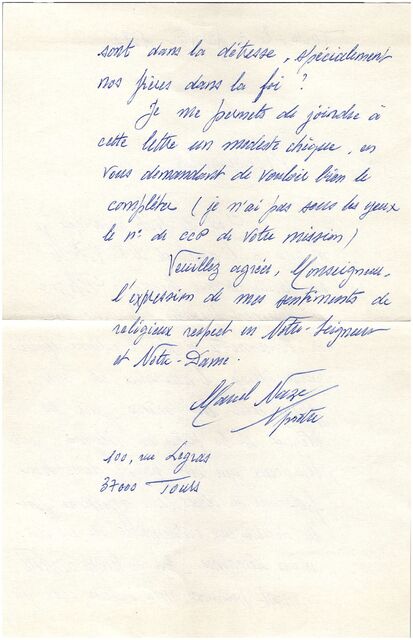 sont dans la détresse, spécialement
nos frères dans la foi ?
Je me permets de joindre à
cette lettre un modeste chèque, en
vous demandant de vouloir bien le
compléter (je n'ai pas sous les yeux
le n° de CCP de votre mission)
Veuillez agréer, Monseigneur,
l'expression de mes sentiments de
religieux respect en Notre-Seigneur
et Notre-Dame.
Marcel
prêtre
100, rue Legras
37000 Tours